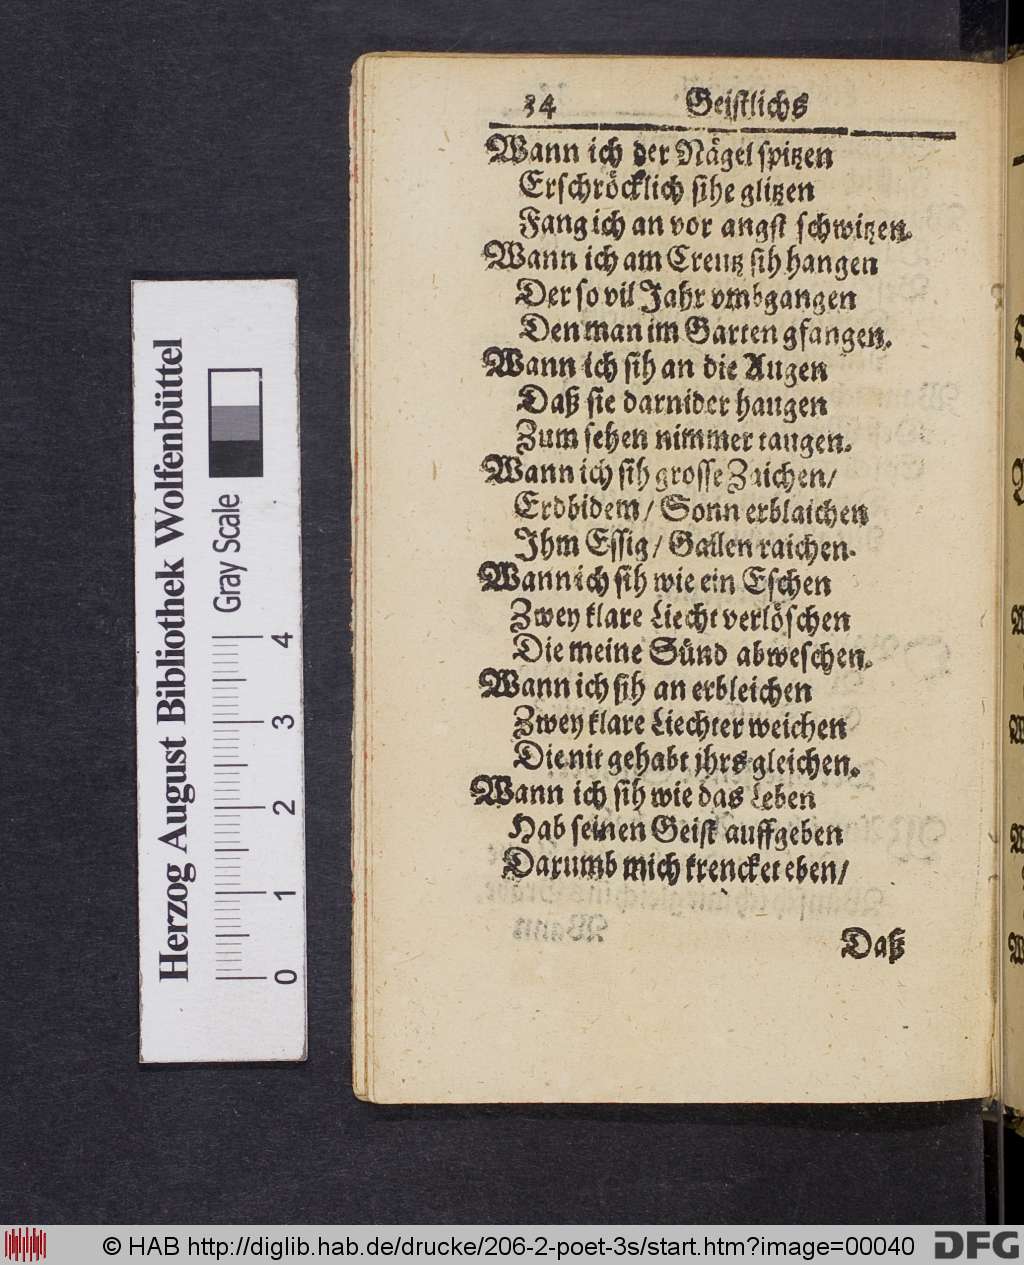 34 Geistlichs
Wann ich der Nägel spitzen
Erschröcklich sihe glitzen
Fang ich an vor angst schwitzen.
Wann ich am Creutz sih hangen
Der so vil Jahr vmbgangen
Den man im Garten gfangen.
Wann ich sih an die Augen
Daß sie darnider haugen
Zum sehen nimmer taugen.
Wann ich sih grosse Zaichen/
Erdbidem/ Sonn erblaichen
Ihm Essig/ Gallen raichen.
Wann ich sih wie ein Eschen
Zwey klare Liecht verlöschen
Die meine Sünd abweschen.
Wann ich sih an erbleichen
Zwey klare Liechter weichen
Die nit gehabt jhrs gleichen.
Wann ich sih wie das Leben
Hab seinen Geist auffgeben
Darumb mich krencket eben/
Daß
Herzog August Bibliothek Wolfenbüttel
Gray Scale
0 1 2 3 4
© HAB http://diglib.hab.de/drucke/206-2-poet-3s/start.htm?image=00040
DFG